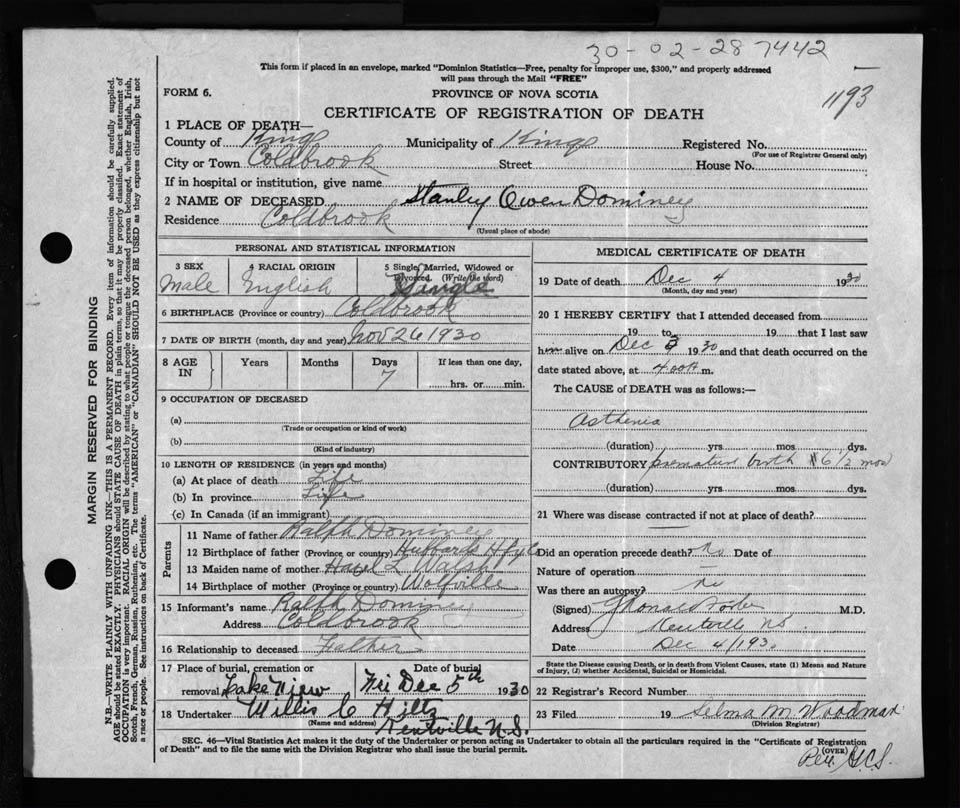 30-02-28 7442
This form if placed in an envelope, marked "Dominion Statistics—Free, penalty for improper use, $300," and properly addressed
will pass through the Mail "FREE"
FORM 6.
PROVINCE OF NOVA SCOTIA
1193
CERTIFICATE OF REGISTRATION OF DEATH
1 PLACE OF DEATH—
County of Kings Municipality of Kings Registered No.
(For use of Registrar General only)
City or Town Coldbrook Street House No.
If in hospital or institution, give name
2 NAME OF DECEASED Stanley Owen Dominey
Residence Coldbrook
(Usual place of abode)
PERSONAL AND STATISTICAL INFORMATION
3 SEX
Male
4 RACIAL ORIGIN
English
5 Single, Married, Widowed or
Divorced. (Write the word)
Single
6 BIRTHPLACE (Province or country) Coldbrook
7 DATE OF BIRTH (month, day and year) Nov 26 1930
8 AGE IN
Years
Months
Days
7
If less than one day,
hrs. or min.
9 OCCUPATION OF DECEASED
(a)
(Trade or occupation or kind of work)
(b)
(Kind of industry)
10 LENGTH OF RESIDENCE (in years and months)
(a) At place of death Life
(b) In province Life
(c) In Canada (if an immigrant)
Parents
11 Name of father Ralph Dominey
12 Birthplace of father (Province or country) Hubbards Hfx Co
13 Maiden name of mother Hazel L Walsh
14 Birthplace of mother (Province or country) Wolfville
15 Informant's name Ralph Dominey
Address Coldbrook
16 Relationship to deceased Father
17 Place of burial, cremation or
removal Lake View
Date of burial
Fri Dec 5th 1930
18 Undertaker Willis C Hiltz
(Name and address) Kentville N.S.
MEDICAL CERTIFICATE OF DEATH
19 Date of death Dec 4 1930
(Month, day and year)
20 I HEREBY CERTIFY that I attended deceased from
19 to 19 that I last saw
him alive on Dec 3 1930 and that death occurred on the
date stated above, at 4 00 A m.
The CAUSE of DEATH was as follows:—
Asthenia
(duration) yrs mos dys.
CONTRIBUTORY premature birth 6 1/2 mos
(duration) yrs. mos. dys.
21 Where was disease contracted if not at place of death?
Did an operation precede death? No Date of
Nature of operation
Was there an autopsy? no
(Signed) Foster M.D.
Address Kentville N.S.
Date Dec 4/1930
State the Disease causing Death, or in death from Violent Causes, state (1) Means and Nature
of Injury, (2) whether Accidental, Suicidal or Homicidal.
22 Registrar's Record Number
23 Filed 19 Selma M. Woodman
(Division Registrar)
SEC. 46—Vital Statistics Act makes it the duty of the Undertaker or person acting as Undertaker to obtain all the particulars required in the "Certificate of Registration
of Death" and to file the same with the Division Registrar who shall issue the burial permit.
(OVER)
MARGIN RESERVED FOR BINDING
N.B.—WRITE PLAINLY WITH UNFADING INK—THIS IS A PERMANENT RECORD. Every item of information should be carefully supplied.
AGE should be stated EXACTLY. PHYSICIANS should STATE CAUSE OF DEATH in plain terms, so that it may be properly classified. Exact statement of
OCCUPATION is very important. RACIAL ORIGIN will be described by stating to what people or tongue the deceased person belonged, whether English, Irish,
Scotch, French, German, Russian, Ruthenian, etc. The terms "AMERICAN" or "CANADIAN" SHOULD NOT BE USED as they express citizenship but not
a race or people. See instructions on back of Certificate.